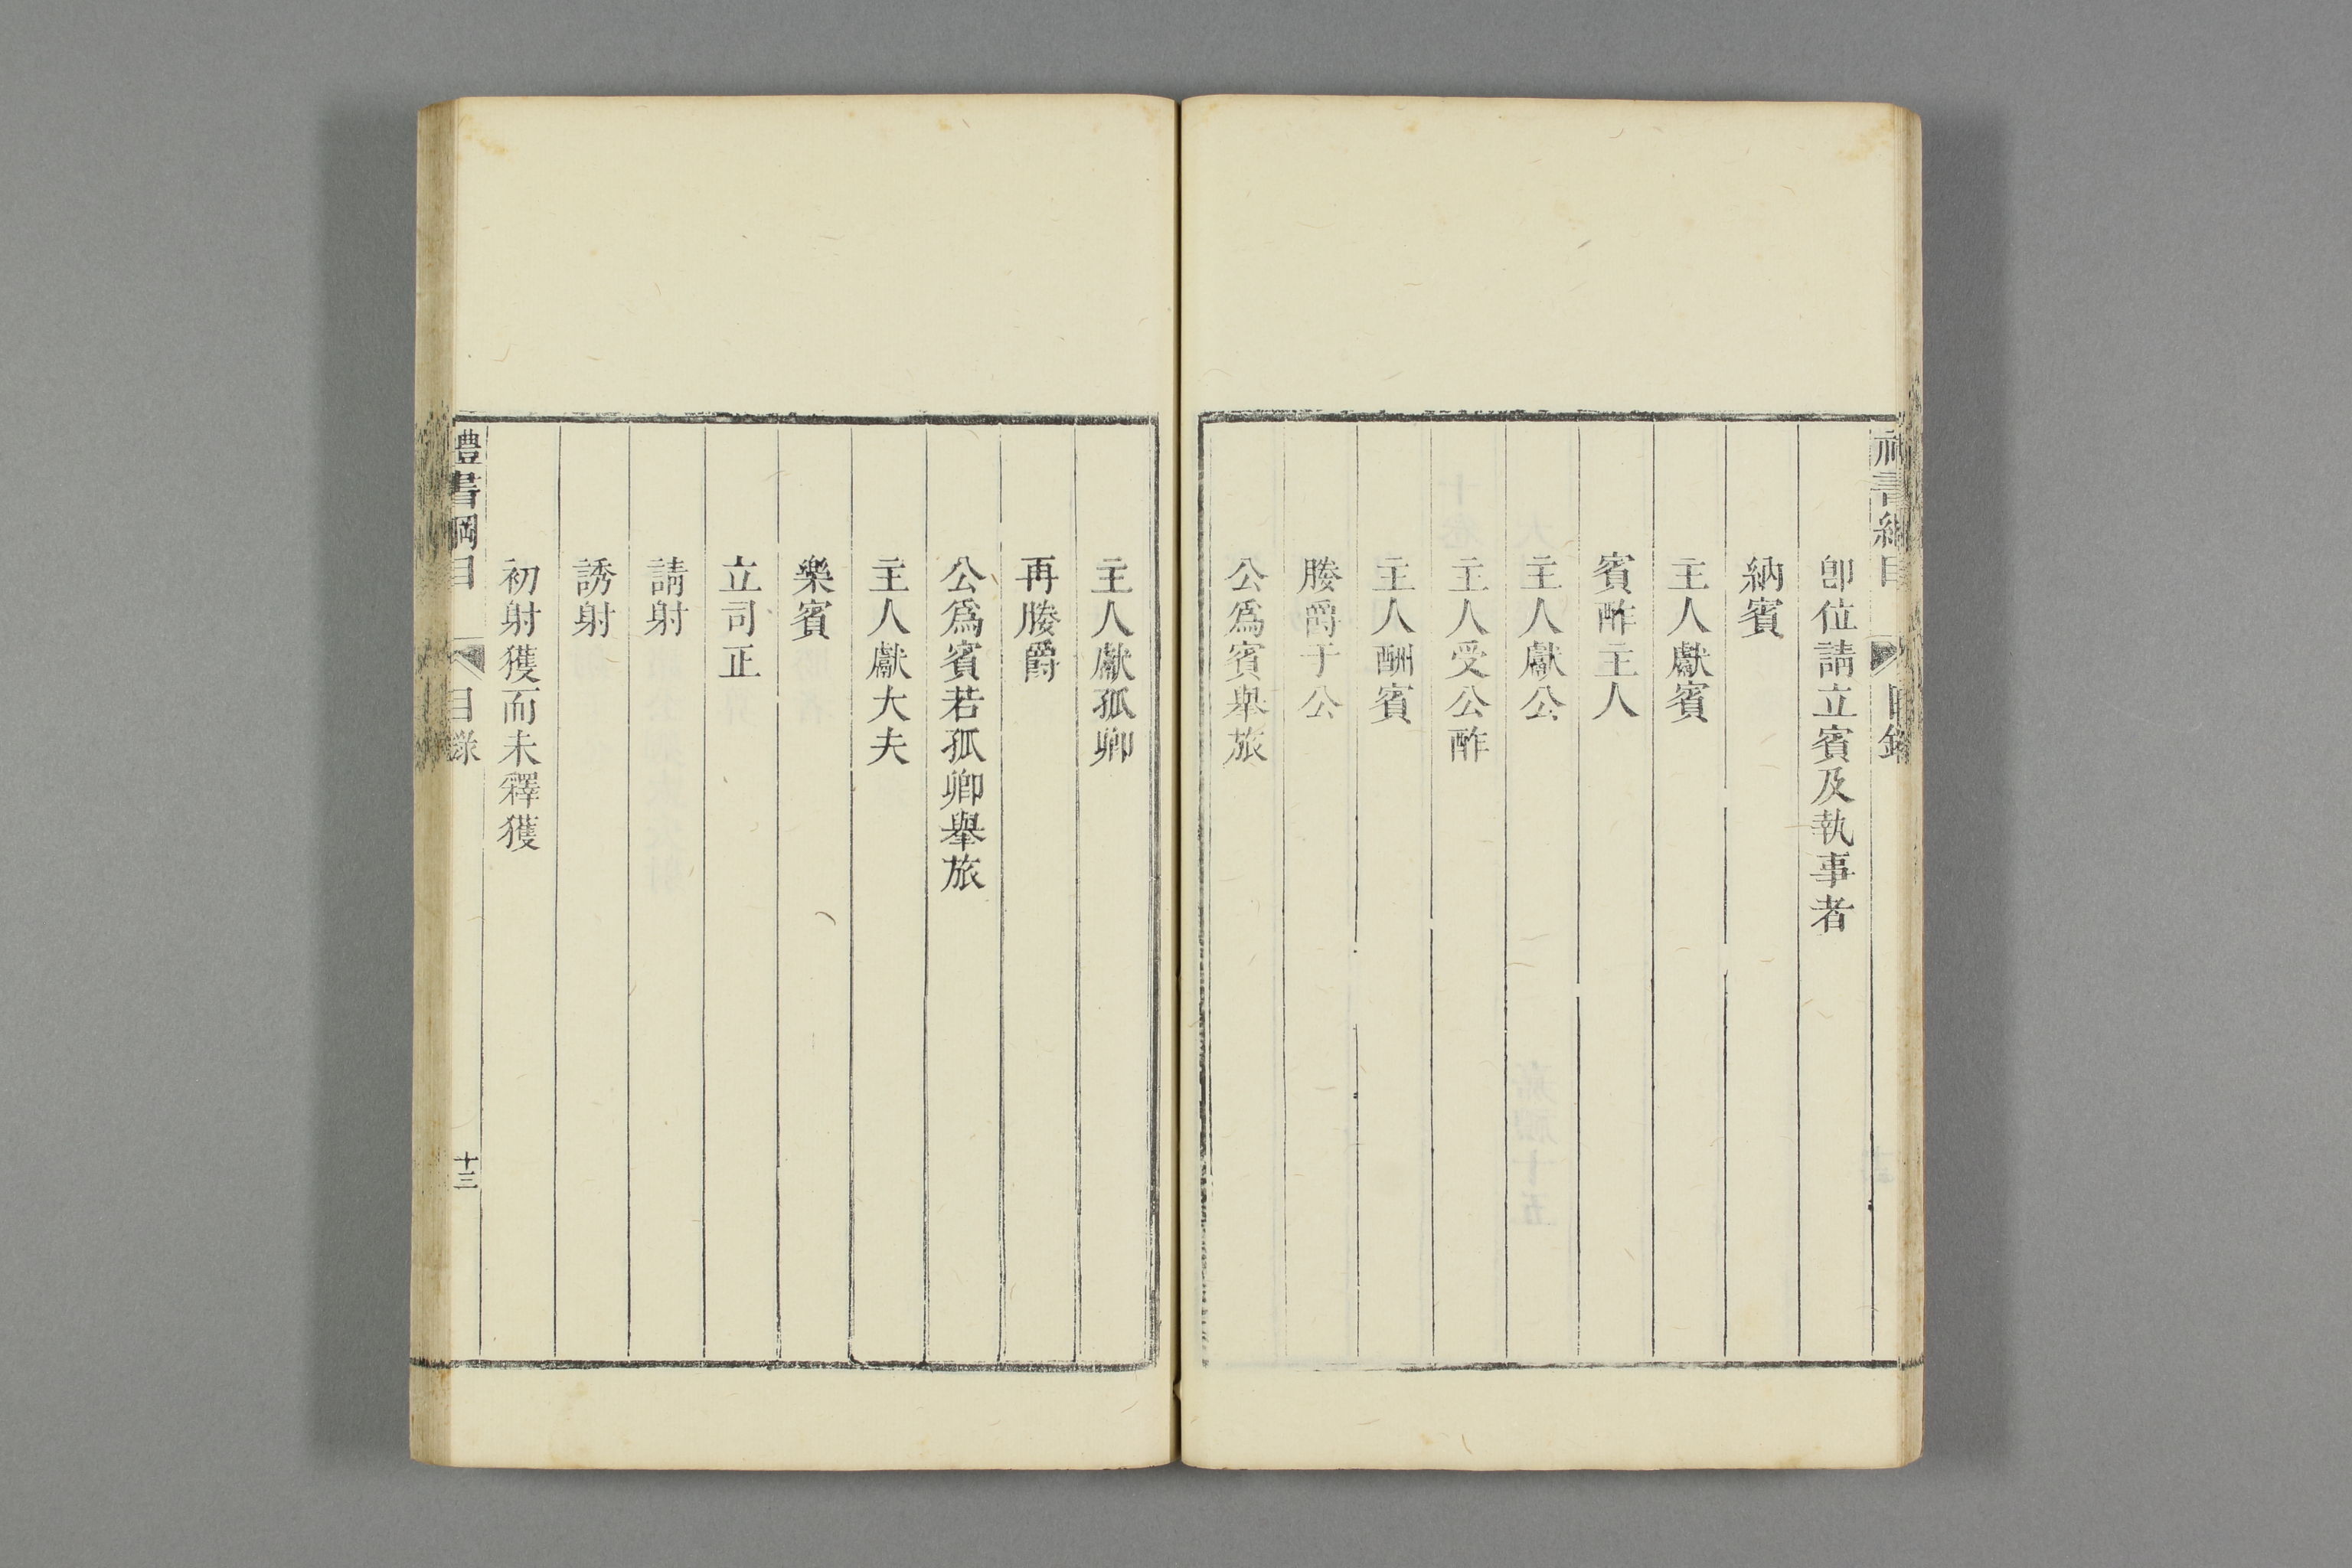 卽位請立賓及執事者
納賓
主人獻賓
賓酢主人
主人獻公
主人受公酢
主人酬賓
媵爵于公
公爲賓舉旅
主人獻孤卿
再媵爵
公爲賓若孤卿舉旅
主人獻大夫
樂賓
立司正
請射
誘射
初射獲而未釋獲
禮書綱目
目錄
十三